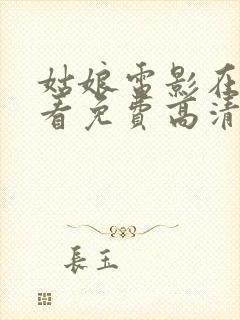 姑娘電影在
看免費高清
長玉